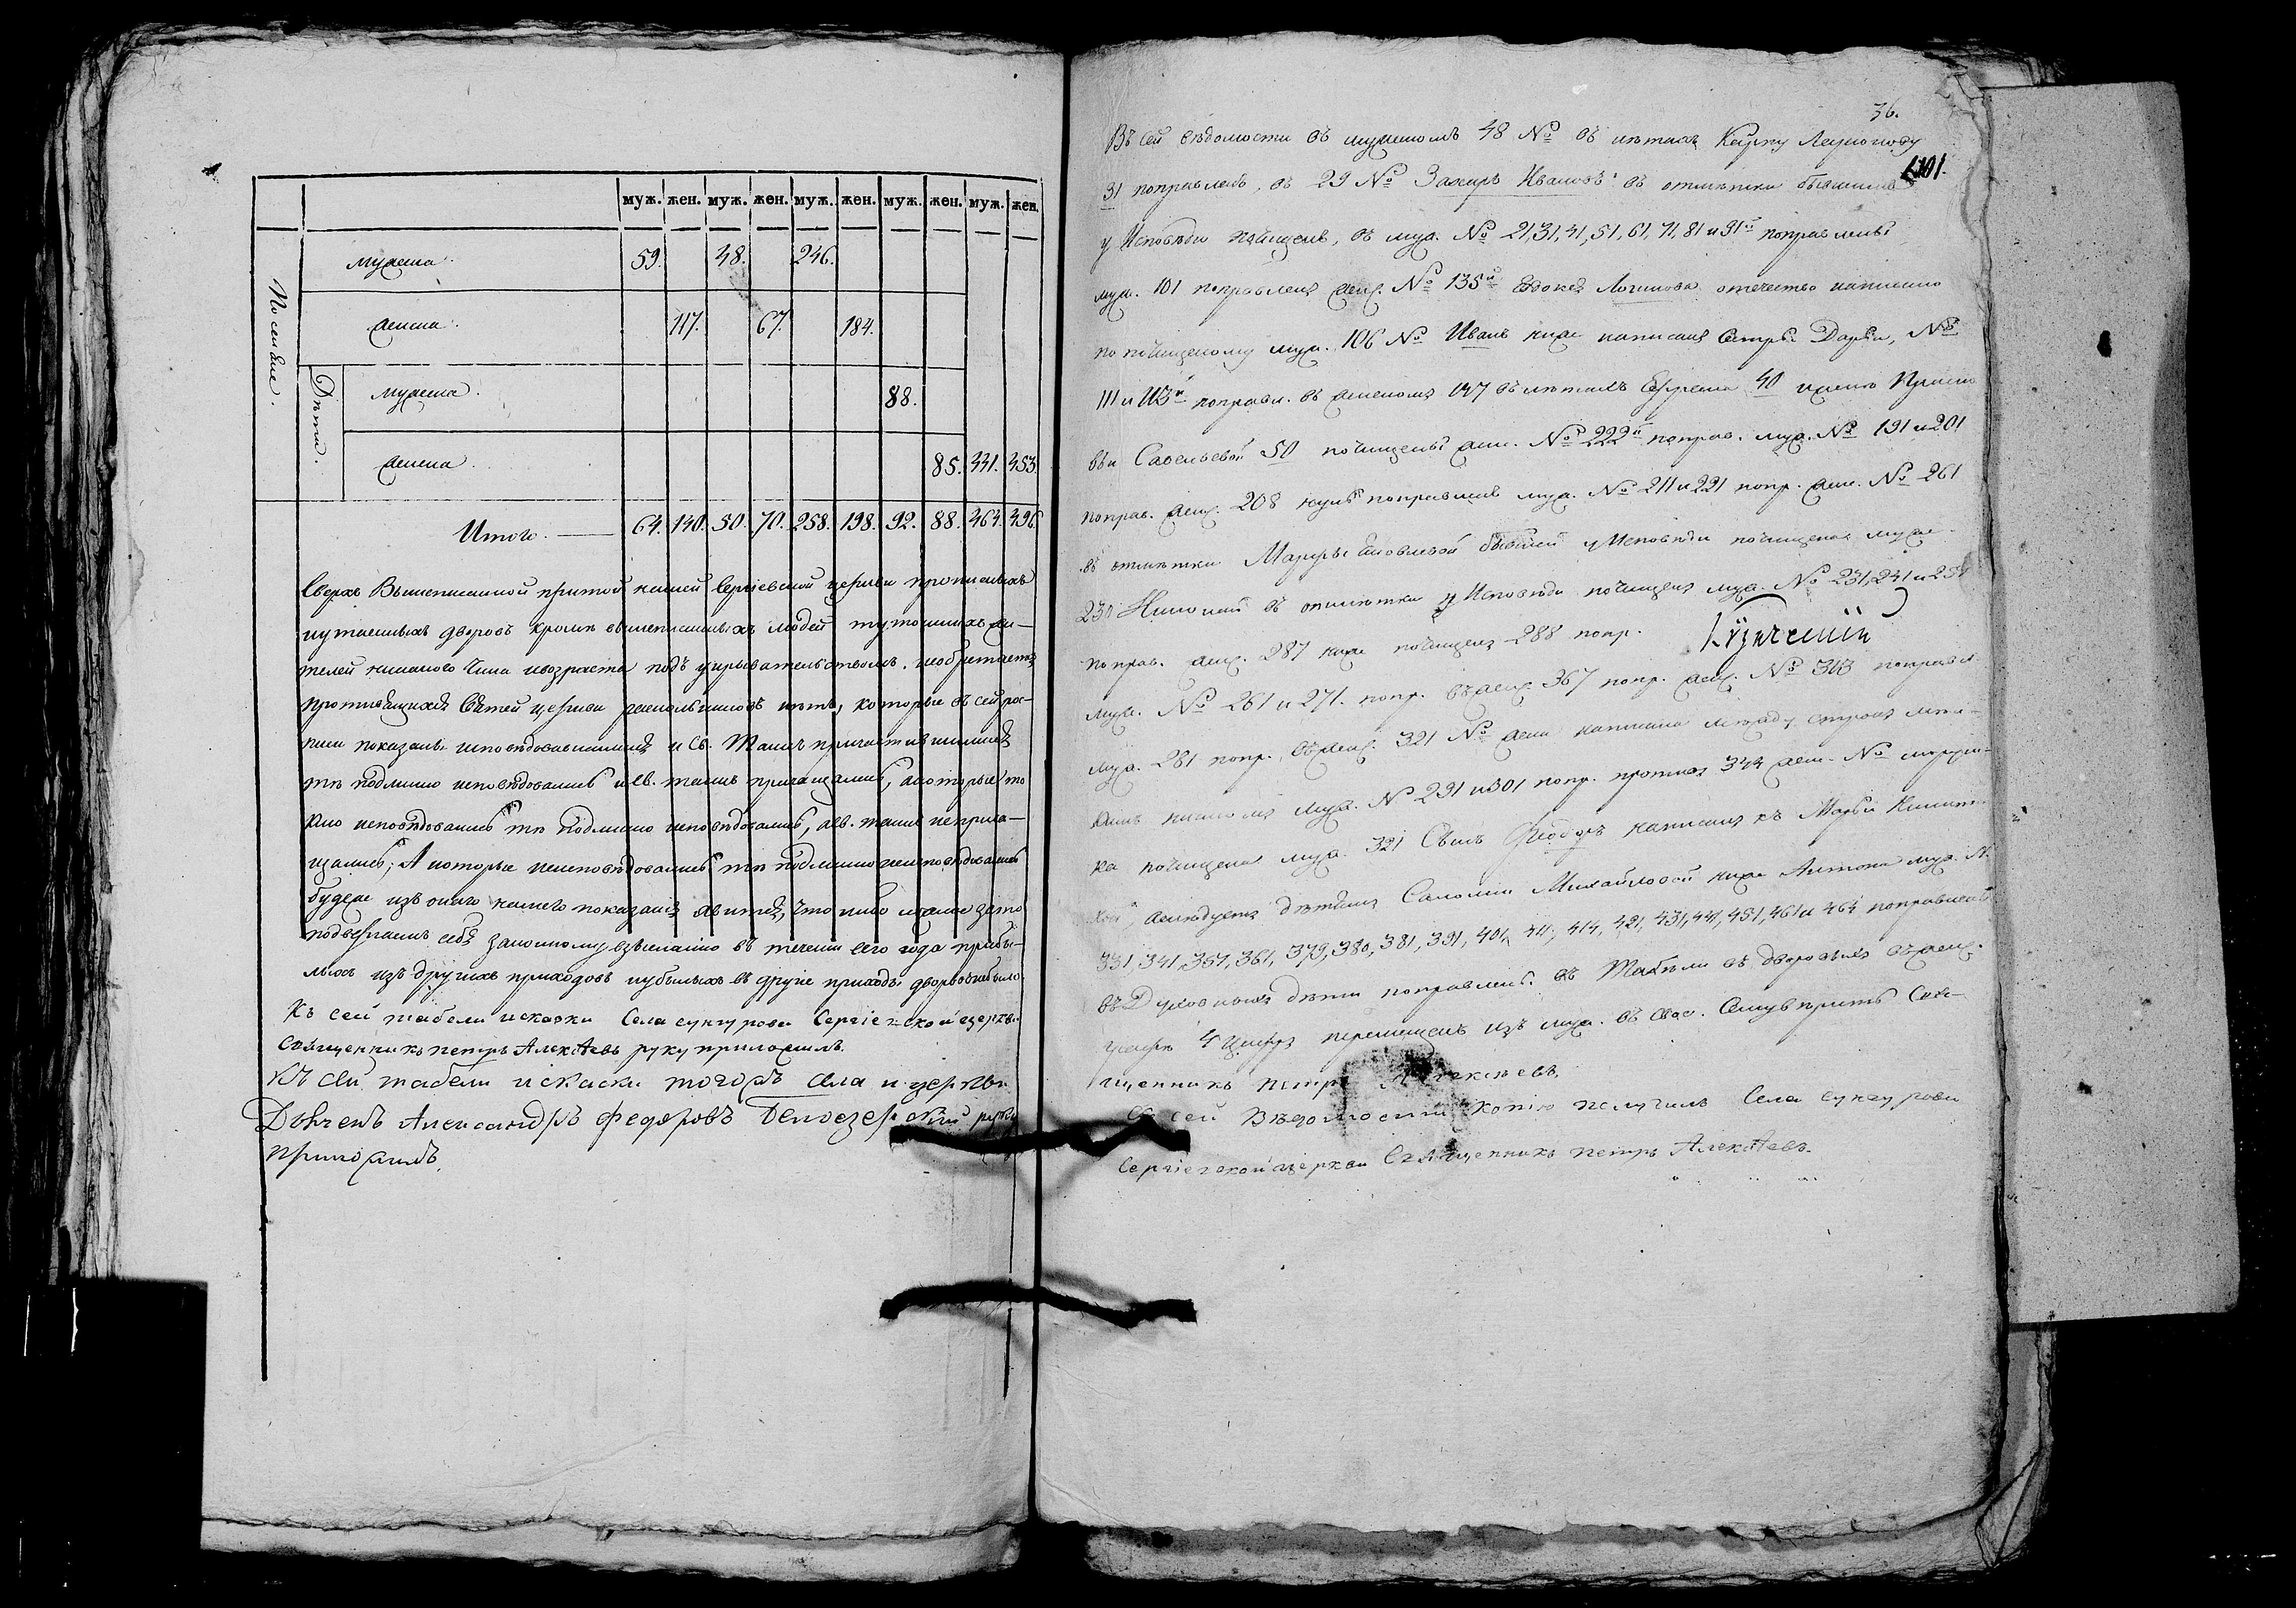 муж. жен. муж. жен. муж. жен. муж. жен. муж. жен.
Поселяне.
мужеска. 59. 48. 246.
женска. 117. 67. 184.
Дѣти.
мужеска. 88.
женска. 85. 441. 453
Итого. 64. 140. 50. 70. 258. 198. 92. 88. 464. 496.
Сверхъ вышеписанной при той нашей Сергіевской церкви прописныхъ
иутаенныхъ дворовъ кромѣ вышеписанныхъ людей тутошнихъ жи-
телей никакого чина ивозраста подъ укрывательствомъ. необретается
противящихся Святей церкви раскольниковъ нѣтъ, которые въ сей рос-
писи показаны исповѣдовавшимися и Св. Таинъ причастившимися
тѣ подлинно исповѣдовались иСв. таинъ причащались, акоторые то
кмо исповѣдовались тѣ подлинно исповѣдовались, аСв. таинъ неприча-
щались; А которые неисповѣдовались тѣ подлинно неисповѣдовались
будеже изъ онаго нашего показанія явится, что либо ложное зато
подвергаемъ себя законному взысканію въ теченіи сего года прибы-
лыхъ изъ другихъ приходовъ иубылыхъ въ другіе приходы дворовъ небыло.
Къ сей табели искаски Села сунгурова Сергіевской церкви
священникъ петръ Алексѣевъ руку приложилъ.
Къ сей табели искаски тогожъ села и церкви
Дьячекъ Александръ Федоровъ Белозерский руку
приложилъ.
36.
101.
Въ сей вѣдомости въ мужескомъ 48 № въ лѣтахъ Карпу
31 поправлено, въ 29 № Захаръ Ивановъ въ отмѣтки бывшимъ
у Исповѣди почищено, въ муж. № 21, 31, 41, 51, 61, 71, 81 и 91й поправлены
муж. 101 поправленъ женс. № 135й Евдокея Логинова отечество написано
по почищеному муж. 106 № Иванъ ниже написанъ сестры Дарьи, №
111 и 113й поправл. въ женскомъ 147 въ лѣтахъ Ефрема 40
Савельевой 50 почищены жен. № 222й поправ. муж. № 191 и 201
поправ. женс. 208 поправленъ муж. № 211 и 221 попр. жен. № 261
въ отмѣтки Марфы бывшей у Исповѣди почищена муже.
231 въ отмѣтки у Исповѣди почищена муж. № 231, 241 и 251
поправ. женс. 287 ниже почищена 288 попр.
муж. № 261 и 271. попр. въ женс. 367 попр. женс. № 313 поправл.
муж. 281 попр., въ женс. 321 № жена написана между строкъ
муж. № 291 и 301 попр. противъ 344 жен. №
ка почищена муж. 321 Сынъ Ѳеодоръ написанъ къ Марьи
дѣтямъ Саломии Михайловой ниже Антона муж. №
331, 341, 351, 361, 379, 380, 381, 391, 401, 411, 414, 421, 431, 441, 451, 461 и 464 поправлены
въ Духовныхъ дѣти поправлено. въ Табели въ дворовыхъ въ женс.
графѣ 4 цифра перемещенъ изъ муж. въ свою. Сему вѣрить Свя-
щенникъ петръ Алексѣевъ.
Съ сей Вѣдомости копію получилъ Села сунгурова
Сергіевской церкви Священникъ петръ Алексѣевъ.